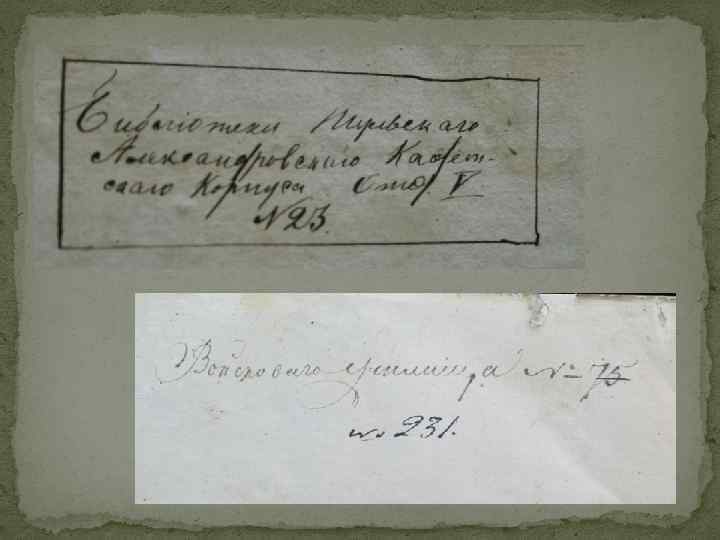 Библіотеки Тульскаго
Александровскаго Кадет-
скаго Корпуса Отд. V
№ 23.
Войсковаго училища № 75
№ 231.